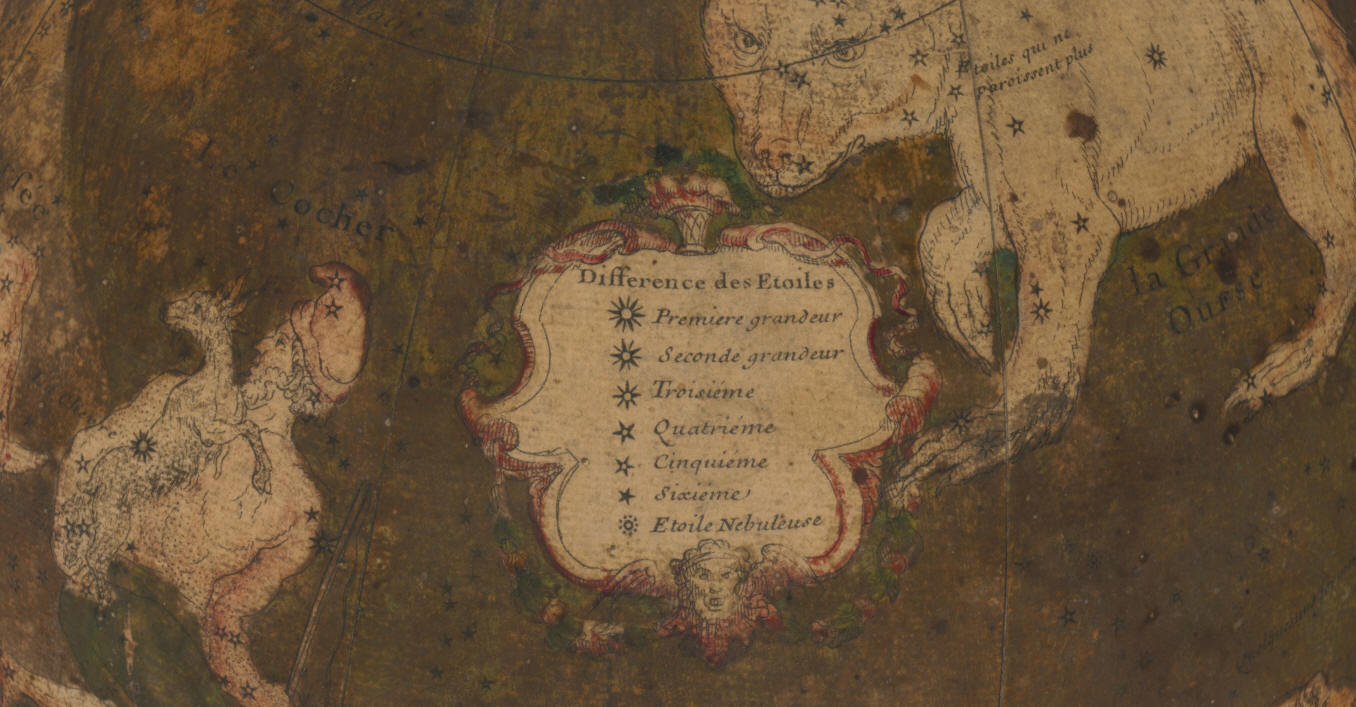 Etoiles qui ne
paroissent plus
Le Cocher
la Grande
Ourse
Difference des Etoiles
Premiere grandeur
Seconde grandeur
Troisiéme
Quatriéme
Cinquiéme
Sixiéme
Etoile Nebuleuse